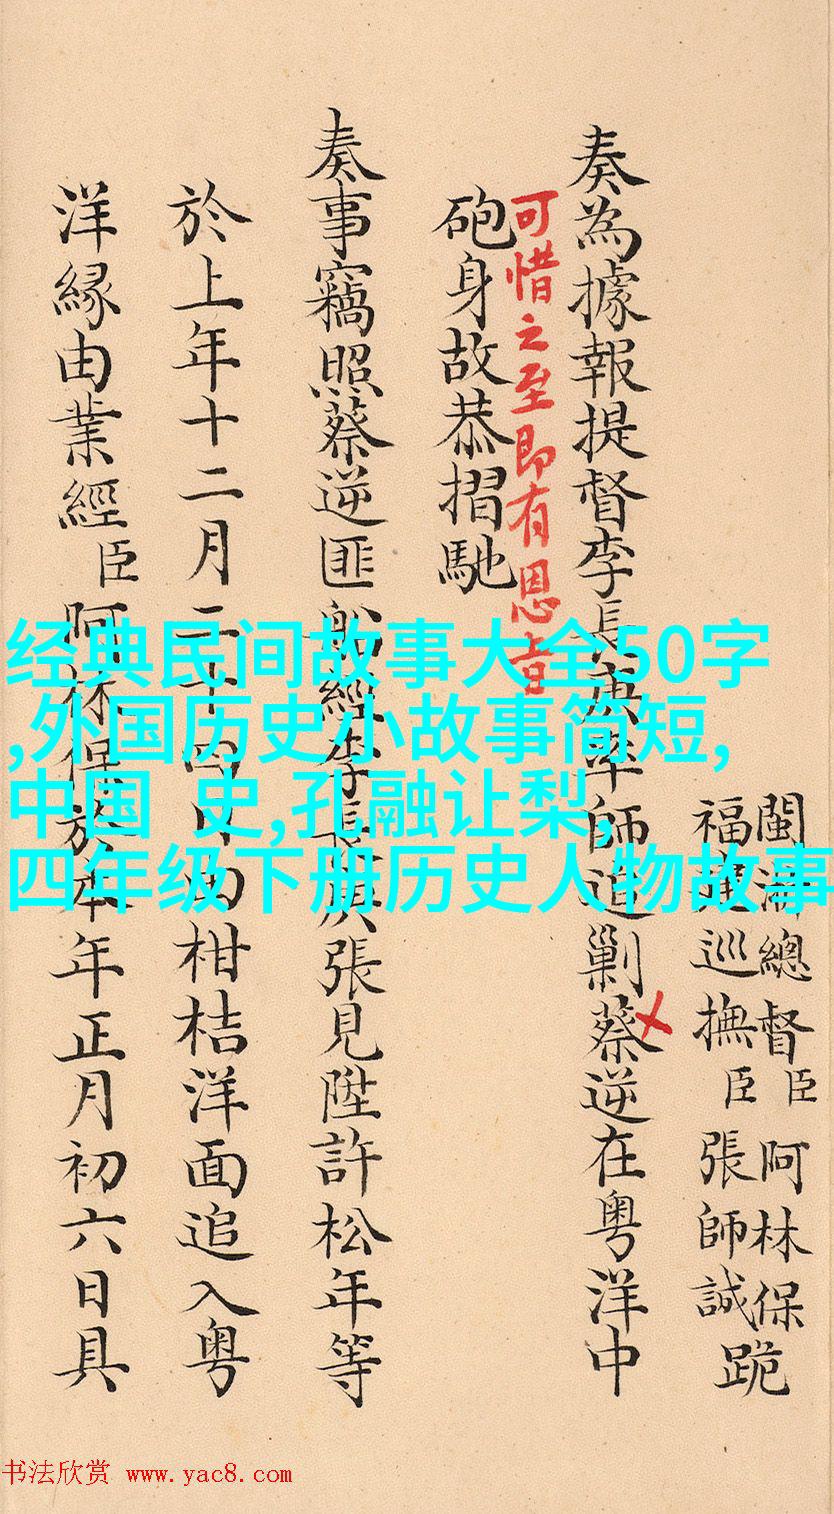 閩浙總督臣阿林保
福建巡撫臣張師誠跪
奏為據報提督李長庚率師追剿蔡逆在粤洋中
可惜之至即有恩旨
砲身故恭摺馳
奏事竊照蔡逆匪船經李長庚張見陞許松年等
於上年十二月二十四日由柑桔洋面追入粤
洋緣由業經臣阿林保於本年正月初六日具
经典民间故事大全50字
,外国历史小故事简短,
中国 史,孔融让梨,
四年级下册历史人物故事
书法欣赏 www.yac8.com